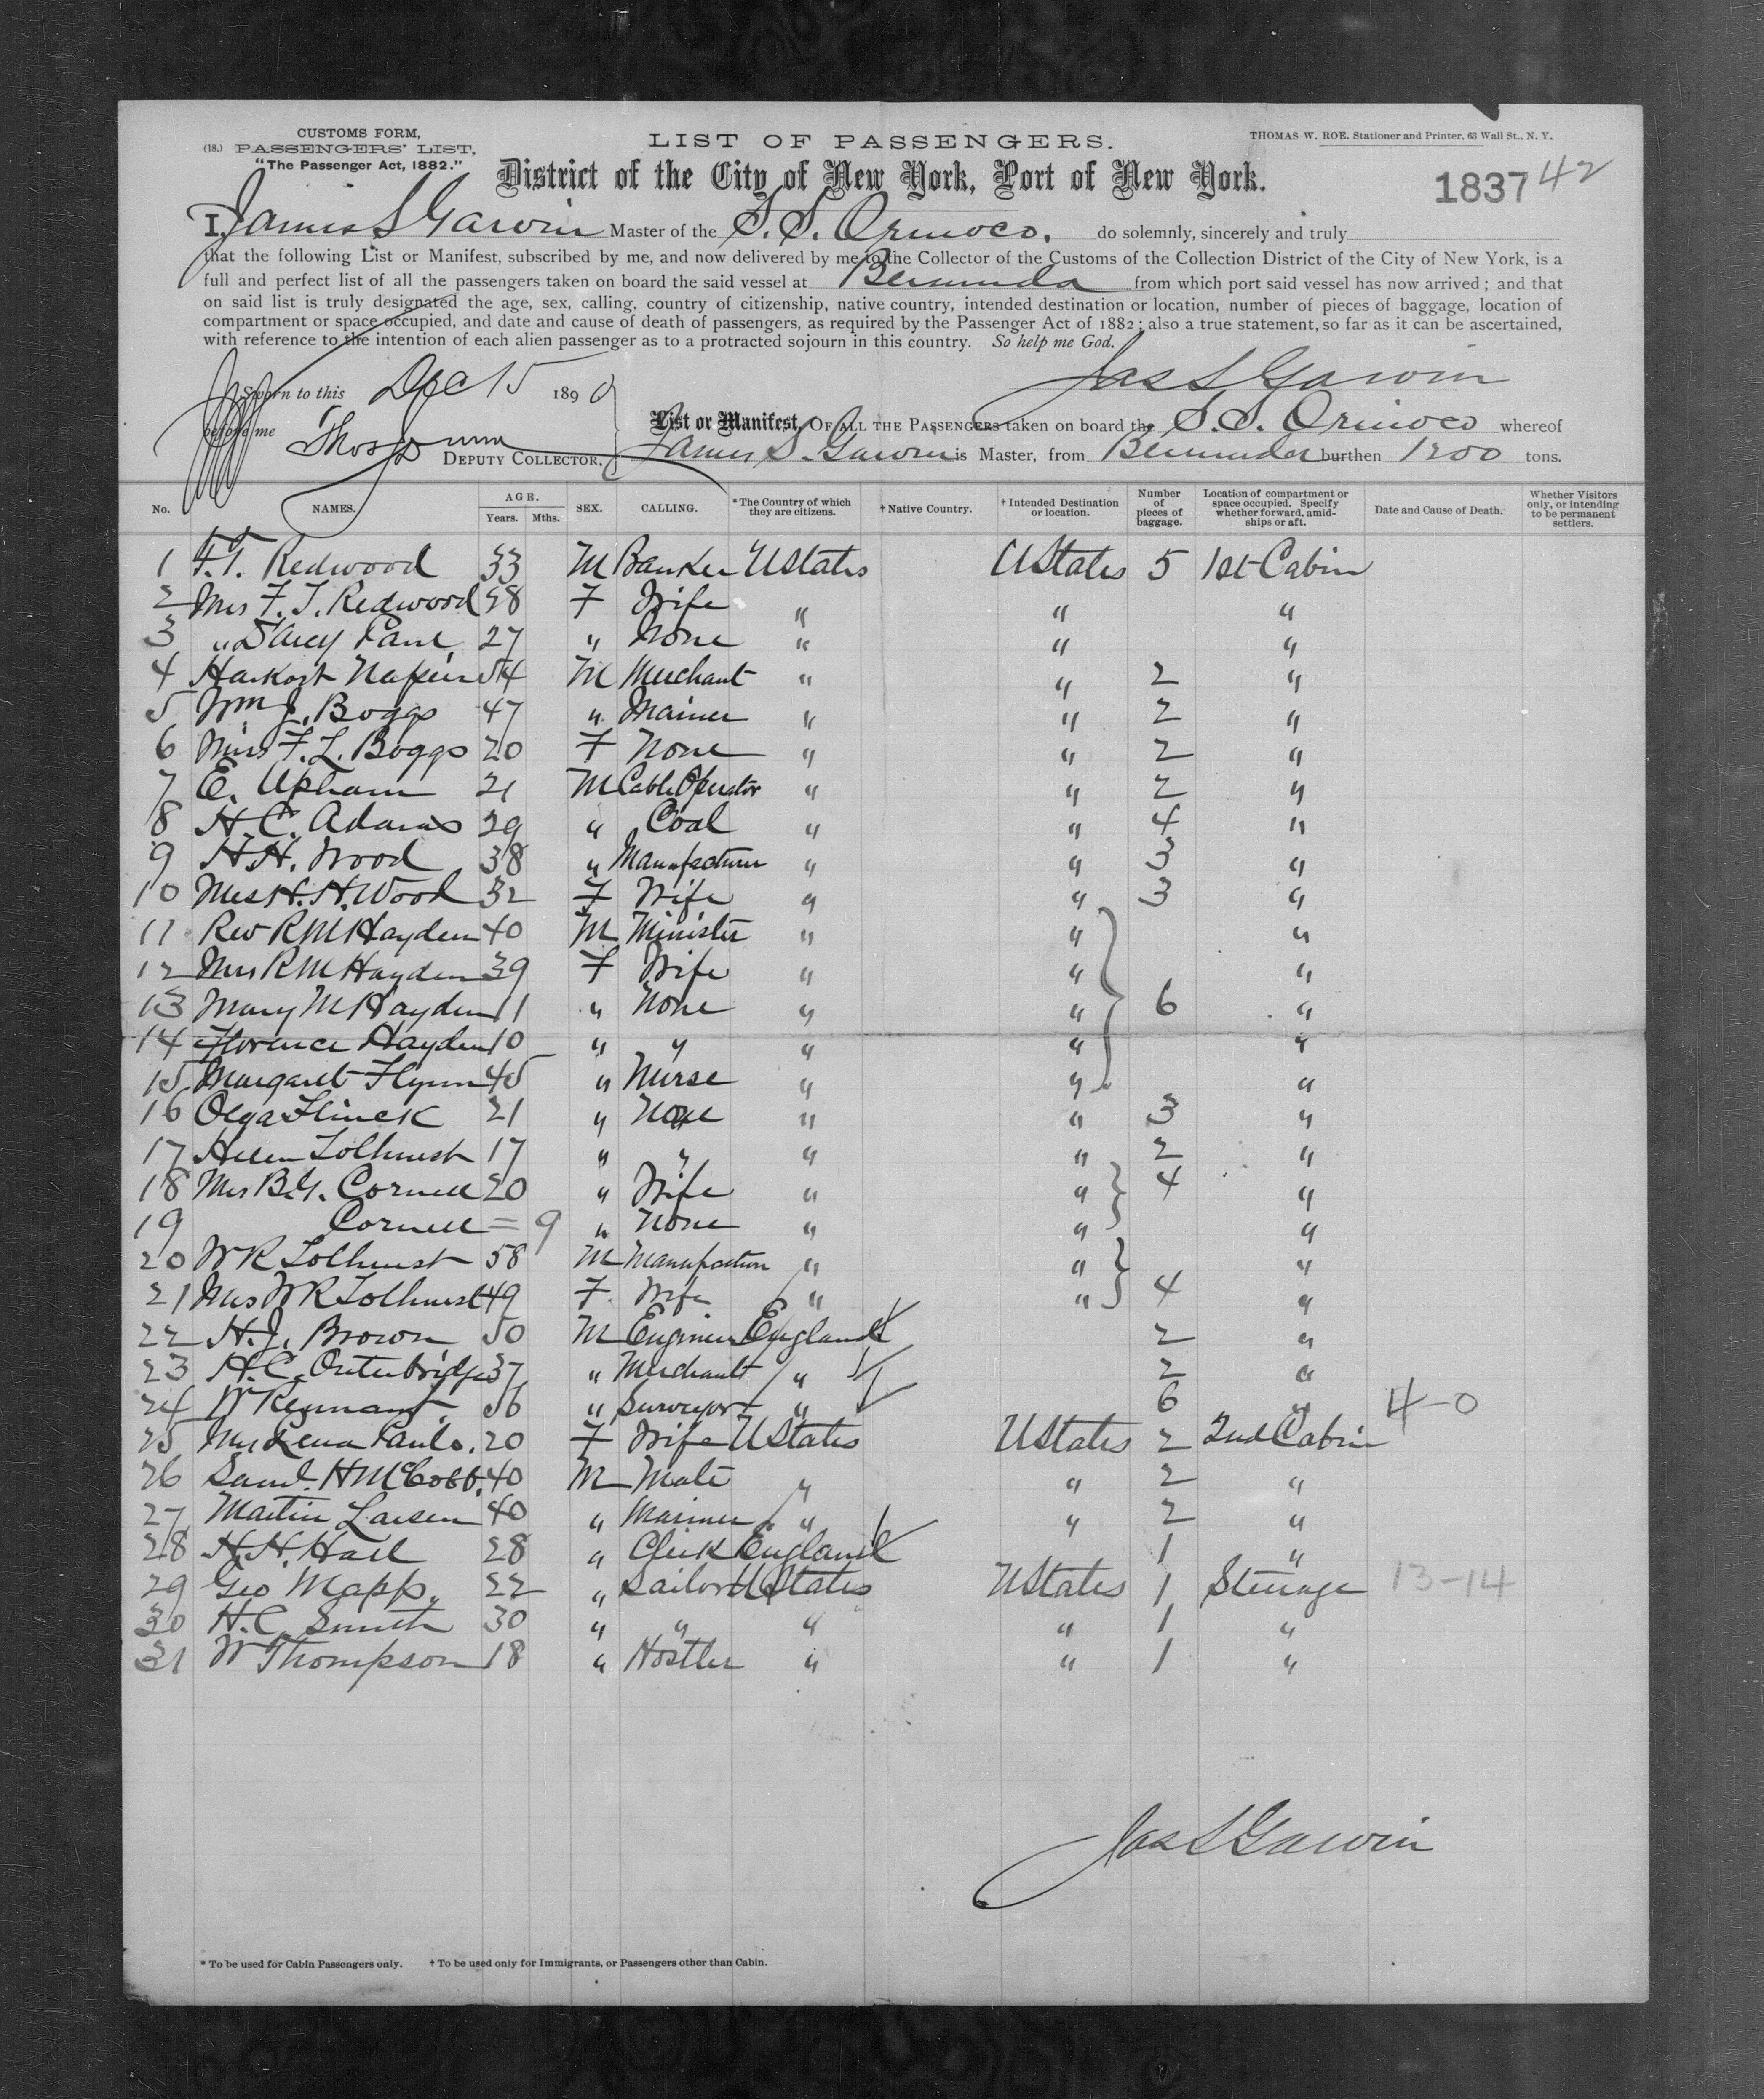 CUSTOMS FORM,
(18.) PASSENGERS' LIST,
"The Passenger Act, 1882."
LIST OF PASSENGERS.
THOMAS W. ROE. Stationer and Printer, 63 Wall St., N. Y.
District of the City of New York, Port of New York.
1837 42
I, James S Garvin Master of the S. S. Orinoco. do solemnly, sincerely and truly
that the following List or Manifest, subscribed by me, and now delivered by me to the Collector of the Customs of the Collection District of the City of New York, is a
full and perfect list of all the passengers taken on board the said vessel at Bermuda from which port said vessel has now arrived; and that
on said list is truly designated the age, sex, calling, country of citizenship, native country, intended destination or location, number of pieces of baggage, location of
compartment or space occupied, and date and cause of death of passengers, as required by the Passenger Act of 1882; also a true statement, so far as it can be ascertained,
with reference to the intention of each alien passenger as to a protracted sojourn in this country. So help me God.
Jas S Garvin
Sworn to this Dec 15 1890
before me Thos
DEPUTY COLLECTOR.
List or Manifest, OF ALL THE PASSENGERS taken on board the S. S. Orinoco whereof
James S. Garvin is Master, from Bermuda burthen 1200 tons.
No. NAMES. AGE. Years. Mths. SEX. CALLING. *The Country of which they are citizens. †Native Country. †Intended Destination or location. Number of pieces of baggage. Location of compartment or space occupied. Specify whether forward, amidships or aft. Date and Cause of Death. Whether Visitors only, or intending to be permanent settlers.
1 F. T. Redwood 33 M Banker UStates UStates 5 1st Cabin
2 Mrs F. T. Redwood 28 F Wife " " "
3 " D'arcy Paul 27 " None " " "
4 Napier 54 M Merchant " " 2 "
5 Wm J. Boggs 47 " Mariner " " 2 "
6 Miss F. L. Boggs 20 F None " " 2 "
7 E. Upham 21 M Cable Operator " " 2 "
8 H. C. Adams 29 " Coal " " 4 "
9 H. H. Wood 38 " Manufacturer " " 3 "
10 Mrs H. H. Wood 32 F Wife " " 3 "
11 Rev R M Hayden 40 M Minister " " "
12 Mrs R M Hayden 39 F Wife " " "
13 Mary M Hayden 11 " None " " 6 "
14 Florence Hayden 10 " " " " "
15 Margaret Flynn 45 " Nurse " " "
16 Olga Flinck 21 " None " " 3 "
17 Helen Tolhurst 17 " " " " 2 "
18 Mrs B. G. Cornell 20 " Wife " " 4 "
19 Cornell = 9 " None " " "
20 W R Tolhurst 58 M Manufacturer " " "
21 Mrs W R Tolhurst 49 F Wife " " 4 "
22 H. J. Brown 50 M Engineer England 2 "
23 H. C. Outerbridge 37 " Merchant " 2 "
24 W 56 " Surveyor " 6 " 4-0
25 Mrs Lena Paulo. 20 F Wife UStates UStates 2 2nd Cabin
26 Saml. H McCobb. 40 M Mate " " 2 "
27 Martin Larsen 40 " Mariner " " 2 "
28 H. H. Hall 28 " Clerk England 1 "
29 Geo Mapp. 22 " Sailor UStates UStates 1 Steerage 13-14
30 H. C. Smith 30 " " " " 1 "
31 W Thompson 18 " Hostler " " 1 "
Jas S Garvin
* To be used for Cabin Passengers only. † To be used only for Immigrants, or Passengers other than Cabin.